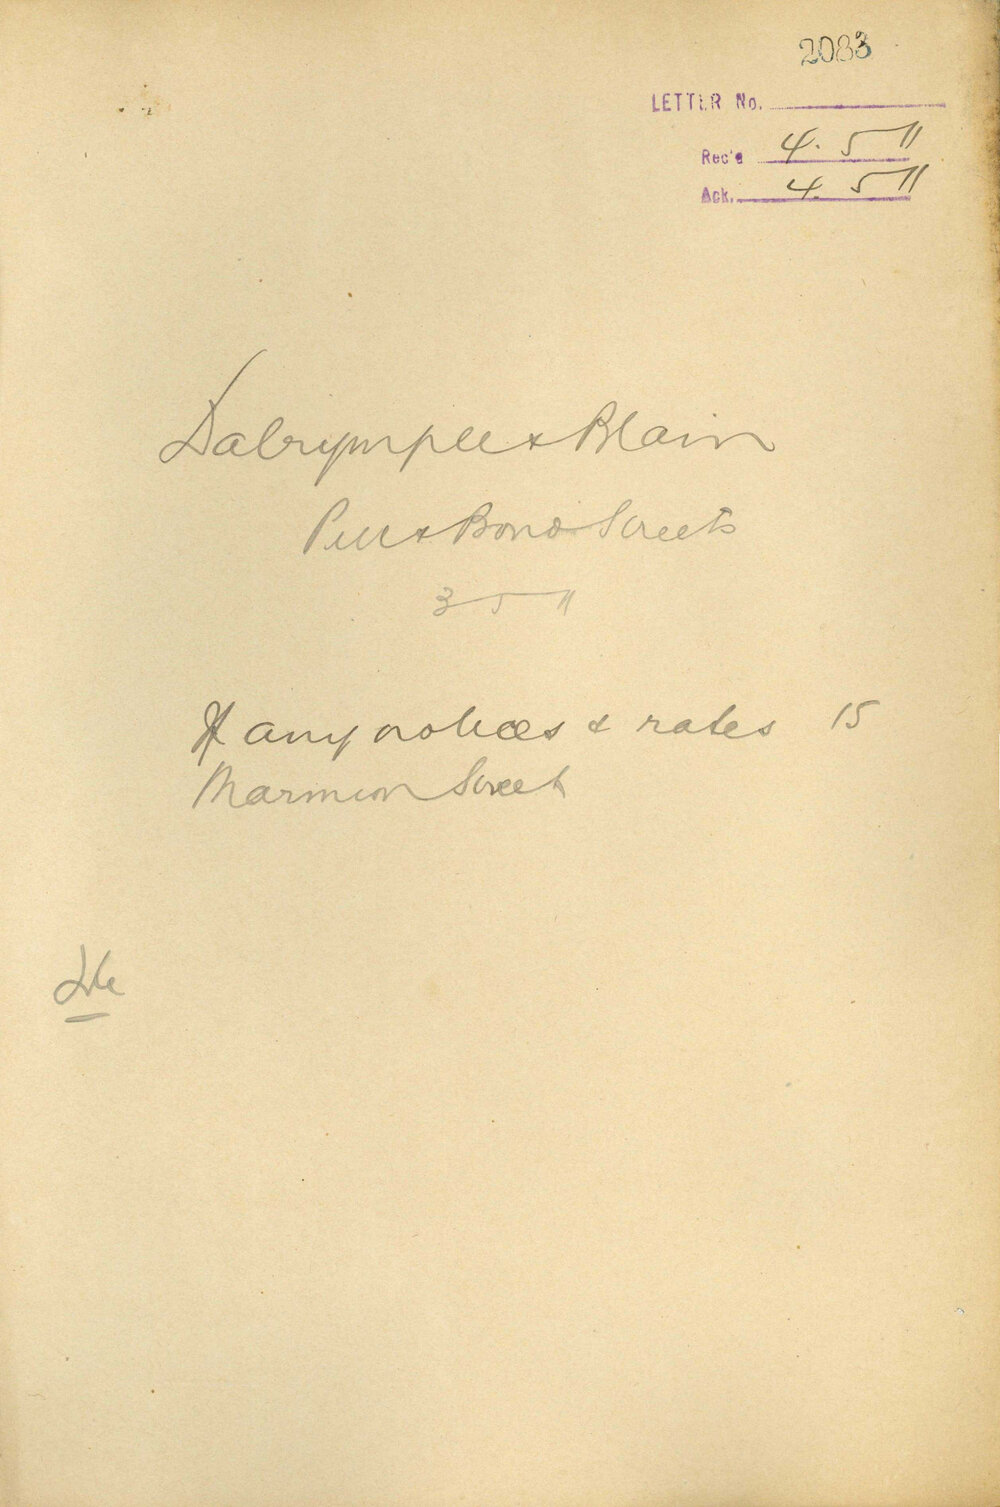 2083
LETTER No.
Rec'd 4. 5 11
Ack. 4. 5 11
Dalrymple & Blain
Pitt & Bond Streets
3 5 11
If any notices & rates 15
Marmion Street